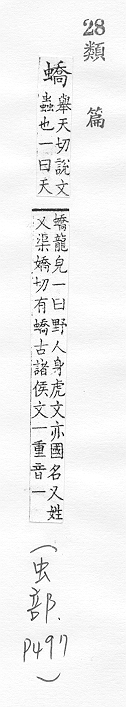 28
類篇
蟜
舉天切說文
蟲也一曰天
蟜龍皃一曰野人身虎文亦國名又姓
又渠嬌切有蟜古諸侯文一重音一
(虫部.
P497)